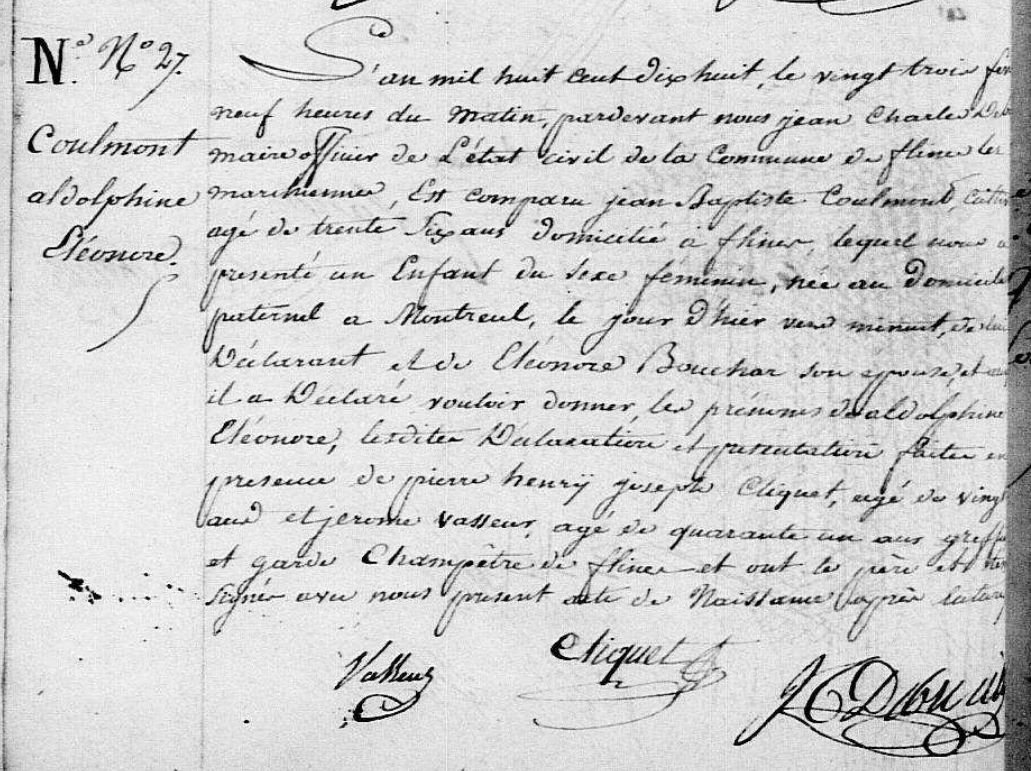 N.° N° 27.
Coulmont
aldolphine
Eléonore.
L'an mil huit cent dix huit, le vingt trois
neuf heures du matin, pardevant nous jean Charles
maire officier de L'état civil de la Commune de flines lez
marchiennes, Est comparu jean Baptiste Coulmont,
agé de trente six ans domicilié à flines, lequel nous a
presenté un Enfant du sexe féminin, née au Domicile
paternel a Montreul, le jour D'hier vers minuit, de lui
Déclarant et de Eléonore Bouchar son epouse, et
il a Déclaré vouloir donner, les prénoms de aldolphine
Eléonore, lesdites Déclaration et presentation faites en
presence de pierre henry joseph Cliquet, agé de vingt
ans et jerome Vasseur, agé de quarante un ans greffier
et garde Champêtre de flines et ont le père et
signés avec nous present acte de Naissance après
Vasseur
Cliquet
J C